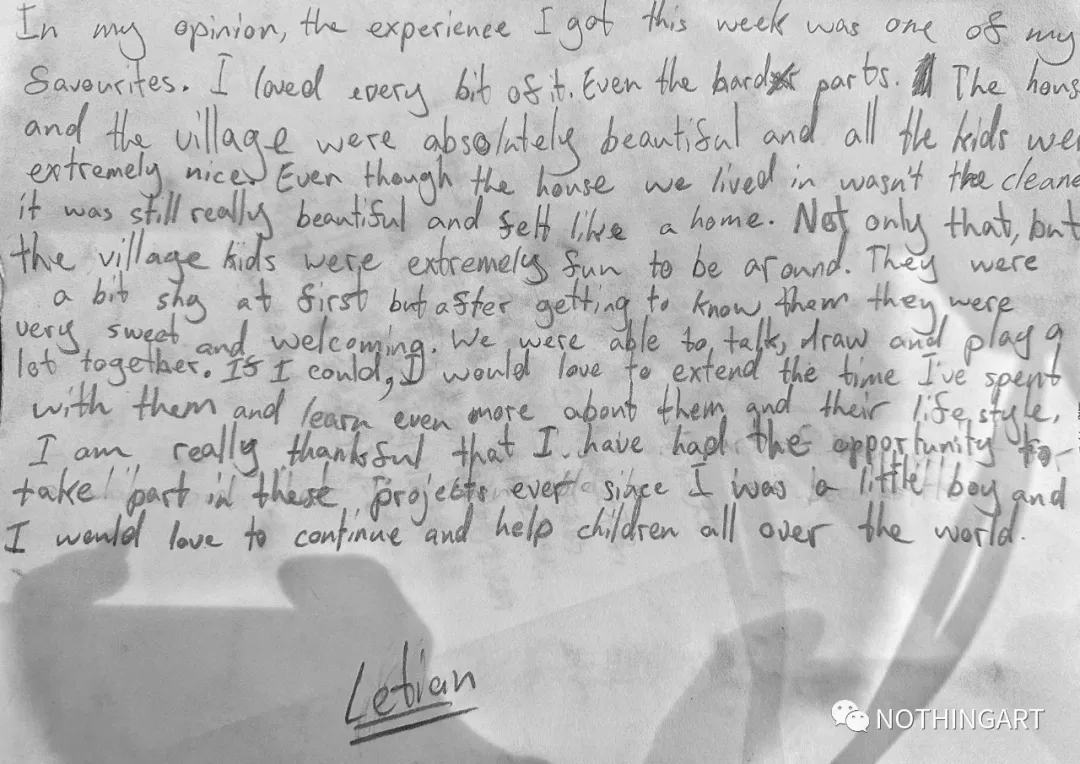 In my opinion, the experience I got this week was one of my
favourites. I loved every bit of it. Even the hard parts. The hous
and the village were absolutely beautiful and all the kids wer
extremely nice. Even though the house we lived in wasn't the cleane
it was still really beautiful and felt like a home. Not only that, but
the village kids were extremely fun to be around. They were
a bit shy at first but after getting to know them they were
very sweet and welcoming. We were able to talk, draw and play a
lot together. If I could, I would love to extend the time I've spent
with them and learn even more about them and their life style.
I am really thankful that I have had the opportunity to
take part in these projects ever since I was a little boy and
I would love to continue and help children all over the world.
Letian
NOTHINGART